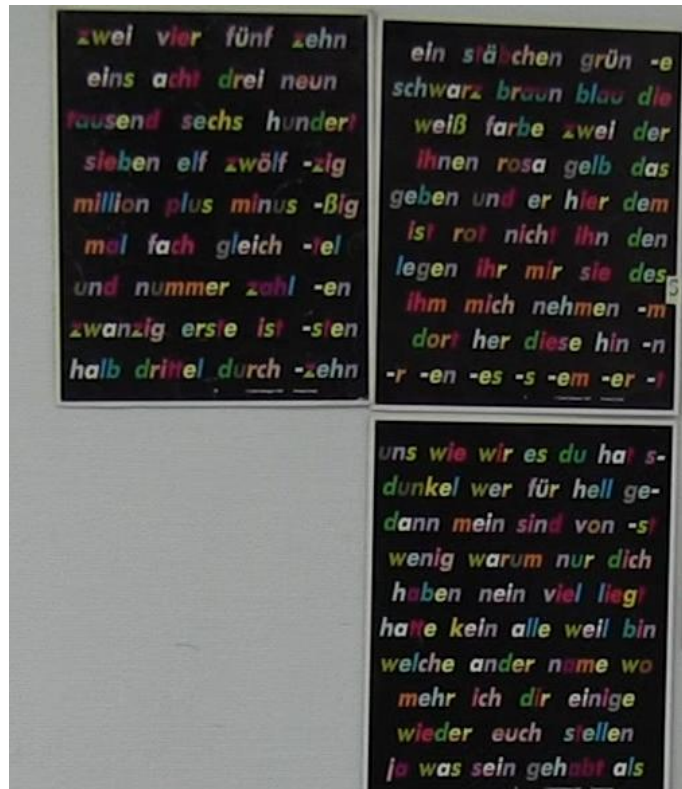 zwei vier fünf zehn
eins acht drei neun
tausend sechs hundert
sieben elf zwölf -zig
million plus minus -ßig
mal fach gleich -tel
und nummer zahl -en
zwanzig erste ist -sten
halb drittel durch -zehn
ein stäbchen grün -e
schwarz braun blau die
weiß farbe zwei der
ihnen rosa gelb das
geben und er hier dem
ist rot nicht ihn den
legen ihr mir sie des
ihm mich nehmen -m
dort her diese hin -n
-r -en -es -s -em -er -t
uns wie wir es du hat s-
dunkel wer für hell ge-
dann mein sind von -st
wenig warum nur dich
haben nein viel liegt
hatte kein alle weil bin
welche ander name wo
mehr ich dir einige
wieder euch stellen
ja was sein gehabt als